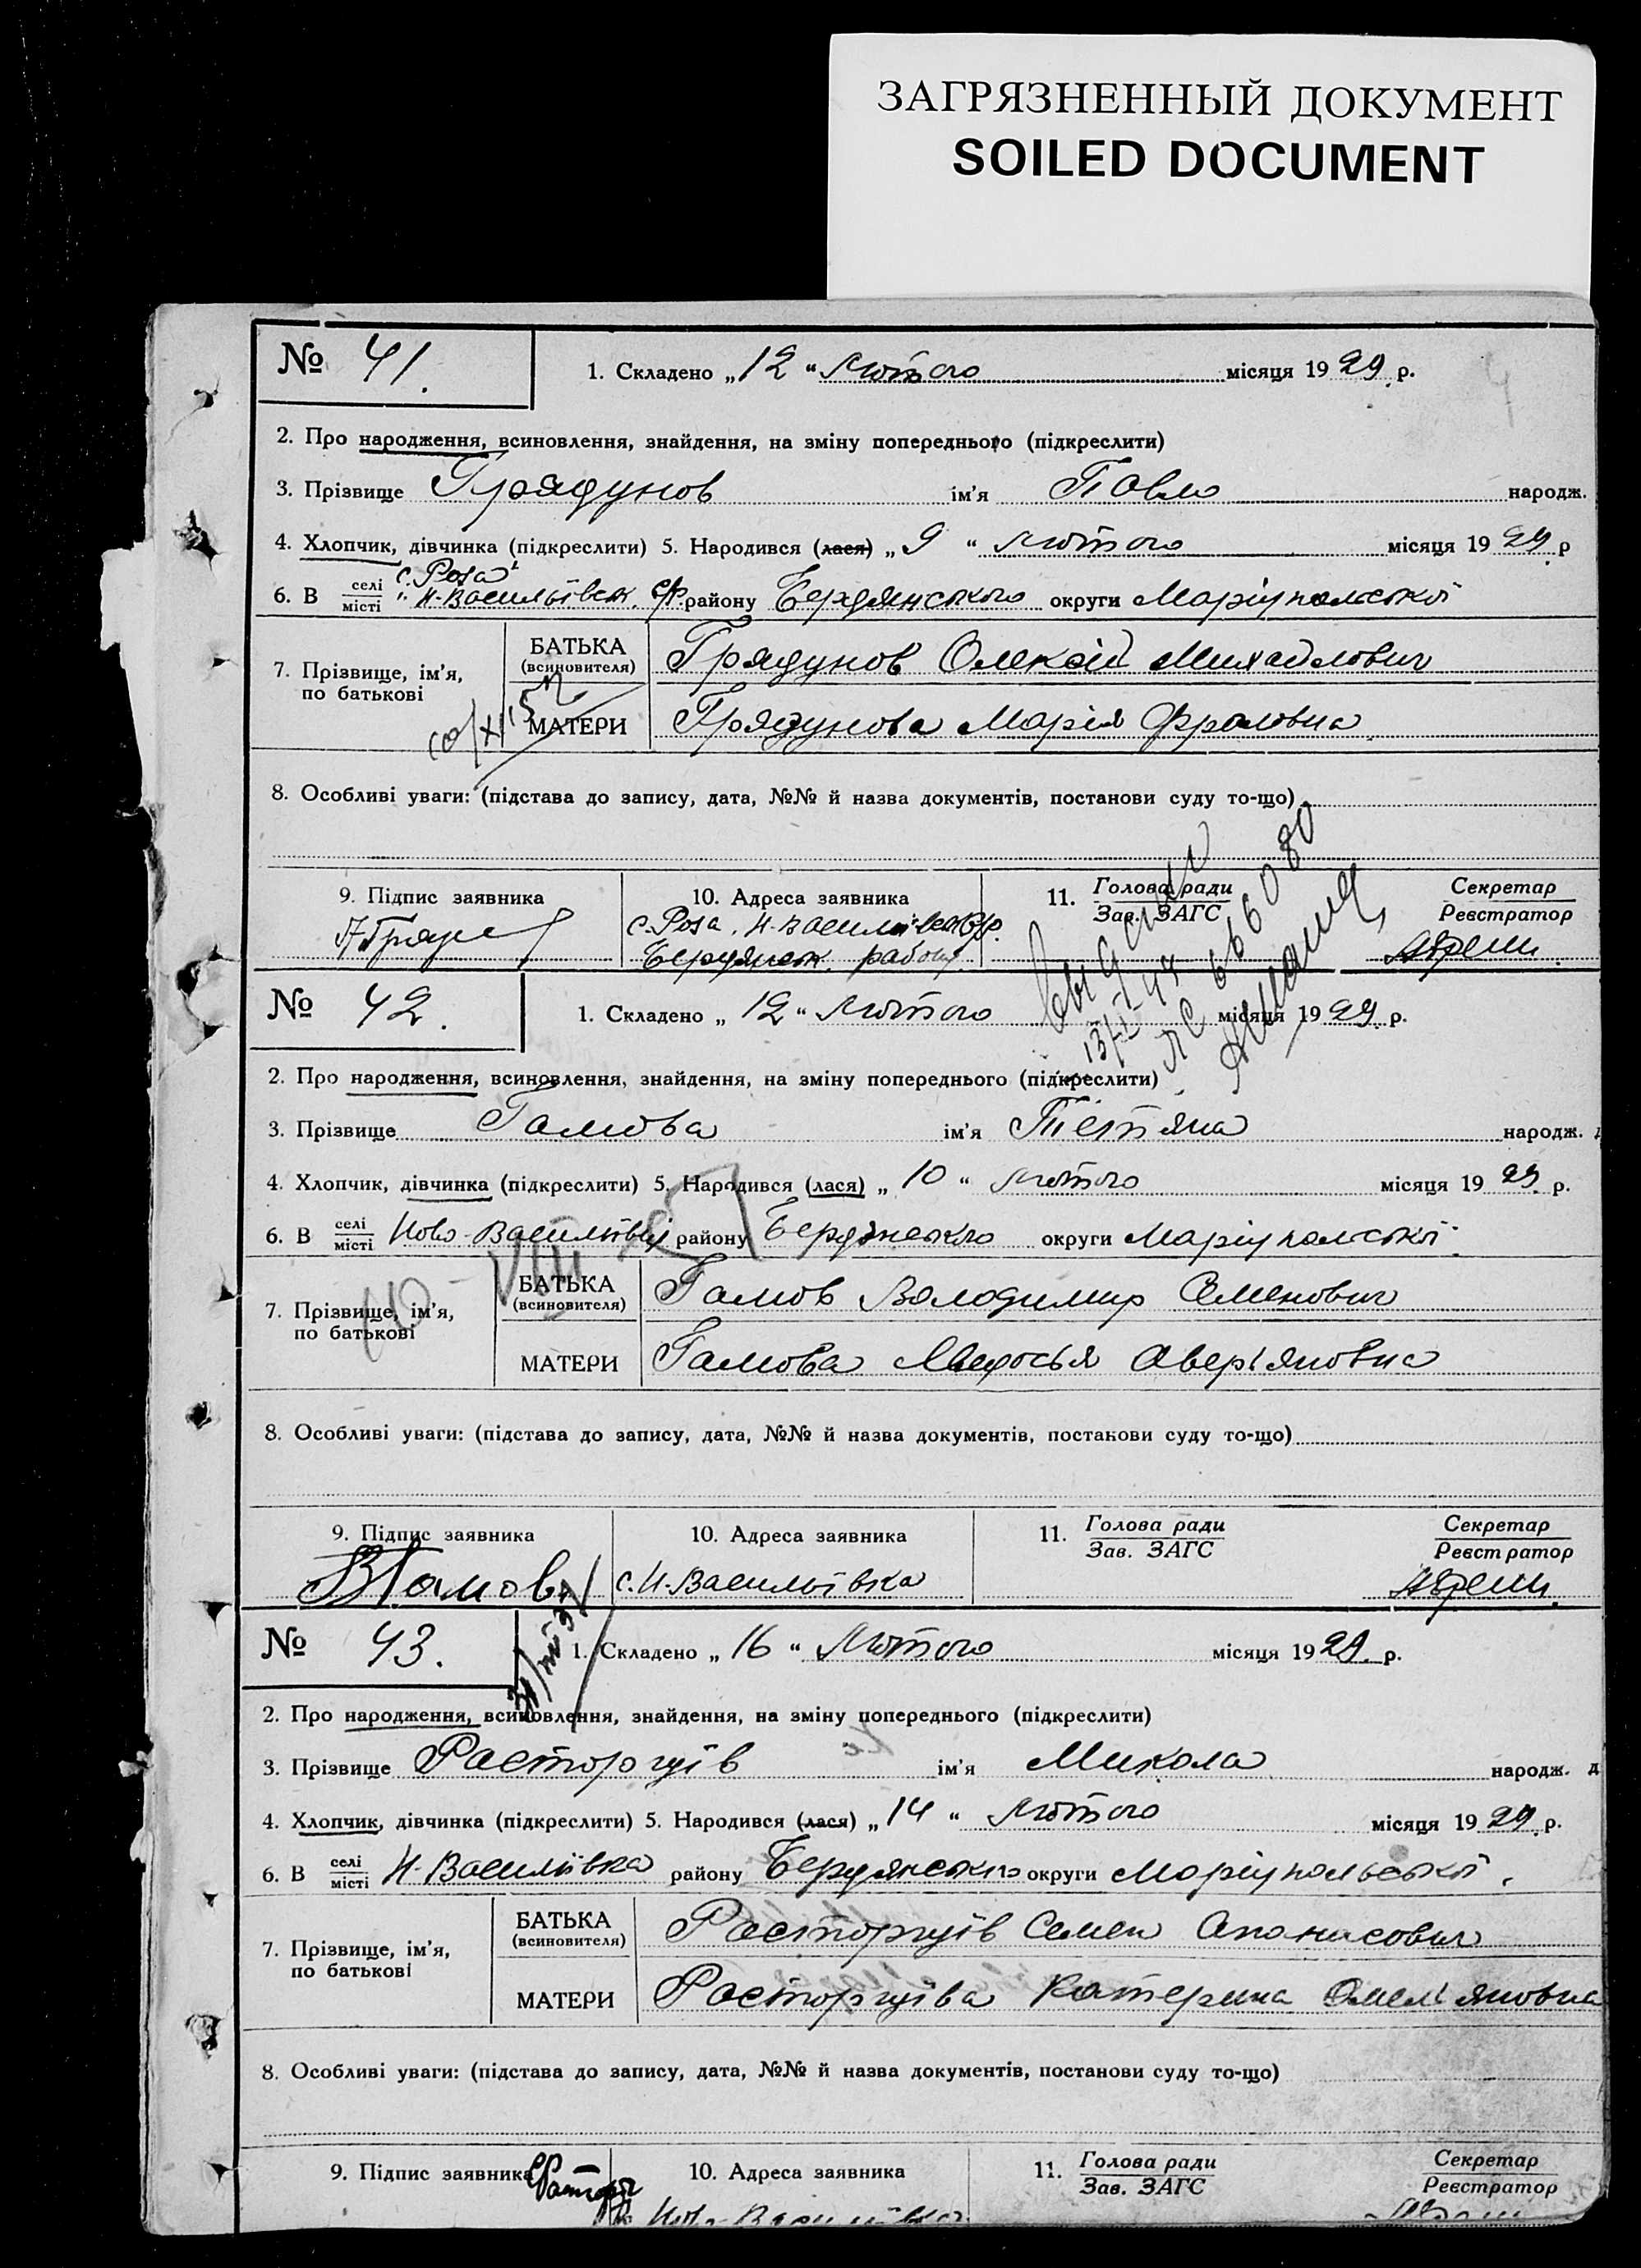 ЗАГРЯЗНЕННЫЙ ДОКУМЕНТ
SOILED DOCUMENT
№ 41.
1. Складено „12“ лютого місяця 1929 р.
2. Про народження, всиновлення, знайдення, на зміну попереднього (підкреслити)
3. Прізвище Грядунов ім'я Павло народж.
4. Хлопчик, дівчинка (підкреслити) 5. Народився (лася) „9“ лютого місяця 1929 р
6. В селі місті с. Роза Н-Васильївськ. с/р. району Бердянського округи Маріупольської
7. Прізвище, ім'я, по батькові
БАТЬКА (всиновителя) Грядунов Олексій Михайлович
МАТЕРИ Грядунова Марія Фроловна
8. Особливі уваги: (підстава до запису, дата, №№ й назва документів, постанови суду то-що)
9. Підпис заявника 10. Адреса заявника 11. Голова ради Зав. ЗАГС Секретар Реєстратор
с. Роза, Н-Васильївськ с/р.
Бердянськ. району
660080
№ 42.
1. Складено „12“ лютого місяця 1929 р.
2. Про народження, всиновлення, знайдення, на зміну попереднього (підкреслити)
3. Прізвище Гамова ім'я Тетяна народж. д
4. Хлопчик, дівчинка (підкреслити) 5. Народився (лася) „10“ лютого місяця 1929 р.
6. В селі місті Ново-Васильївці району Бердянського округи Маріупольської
7. Прізвище, ім'я, по батькові
БАТЬКА (всиновителя) Гамов Володимир Семенович
МАТЕРИ Гамова Авер'яновна
8. Особливі уваги: (підстава до запису, дата, №№ й назва документів, постанови суду то-що)
9. Підпис заявника 10. Адреса заявника 11. Голова ради Зав. ЗАГС Секретар Реєстратор
В Гамов с. Н-Васильївка
№ 43.
1. Складено „16“ Лютого місяця 1929 р.
2. Про народження, всиновлення, знайдення, на зміну попереднього (підкреслити)
3. Прізвище Расторгуїв ім'я Микола народж. д
4. Хлопчик, дівчинка (підкреслити) 5. Народився (лася) „14“ лютого місяця 1929 р.
6. В селі місті Н-Васильївка району Бердянського округи Маріупольської.
7. Прізвище, ім'я, по батькові
БАТЬКА (всиновителя) Расторгуїв Семен Опанасович
МАТЕРИ Расторгуїва Катерина Омел'яновна
8. Особливі уваги: (підстава до запису, дата, №№ й назва документів, постанови суду то-що)
9. Підпис заявника 10. Адреса заявника 11. Голова ради Зав. ЗАГС Секретар Реєстратор
Ново-Васильївка